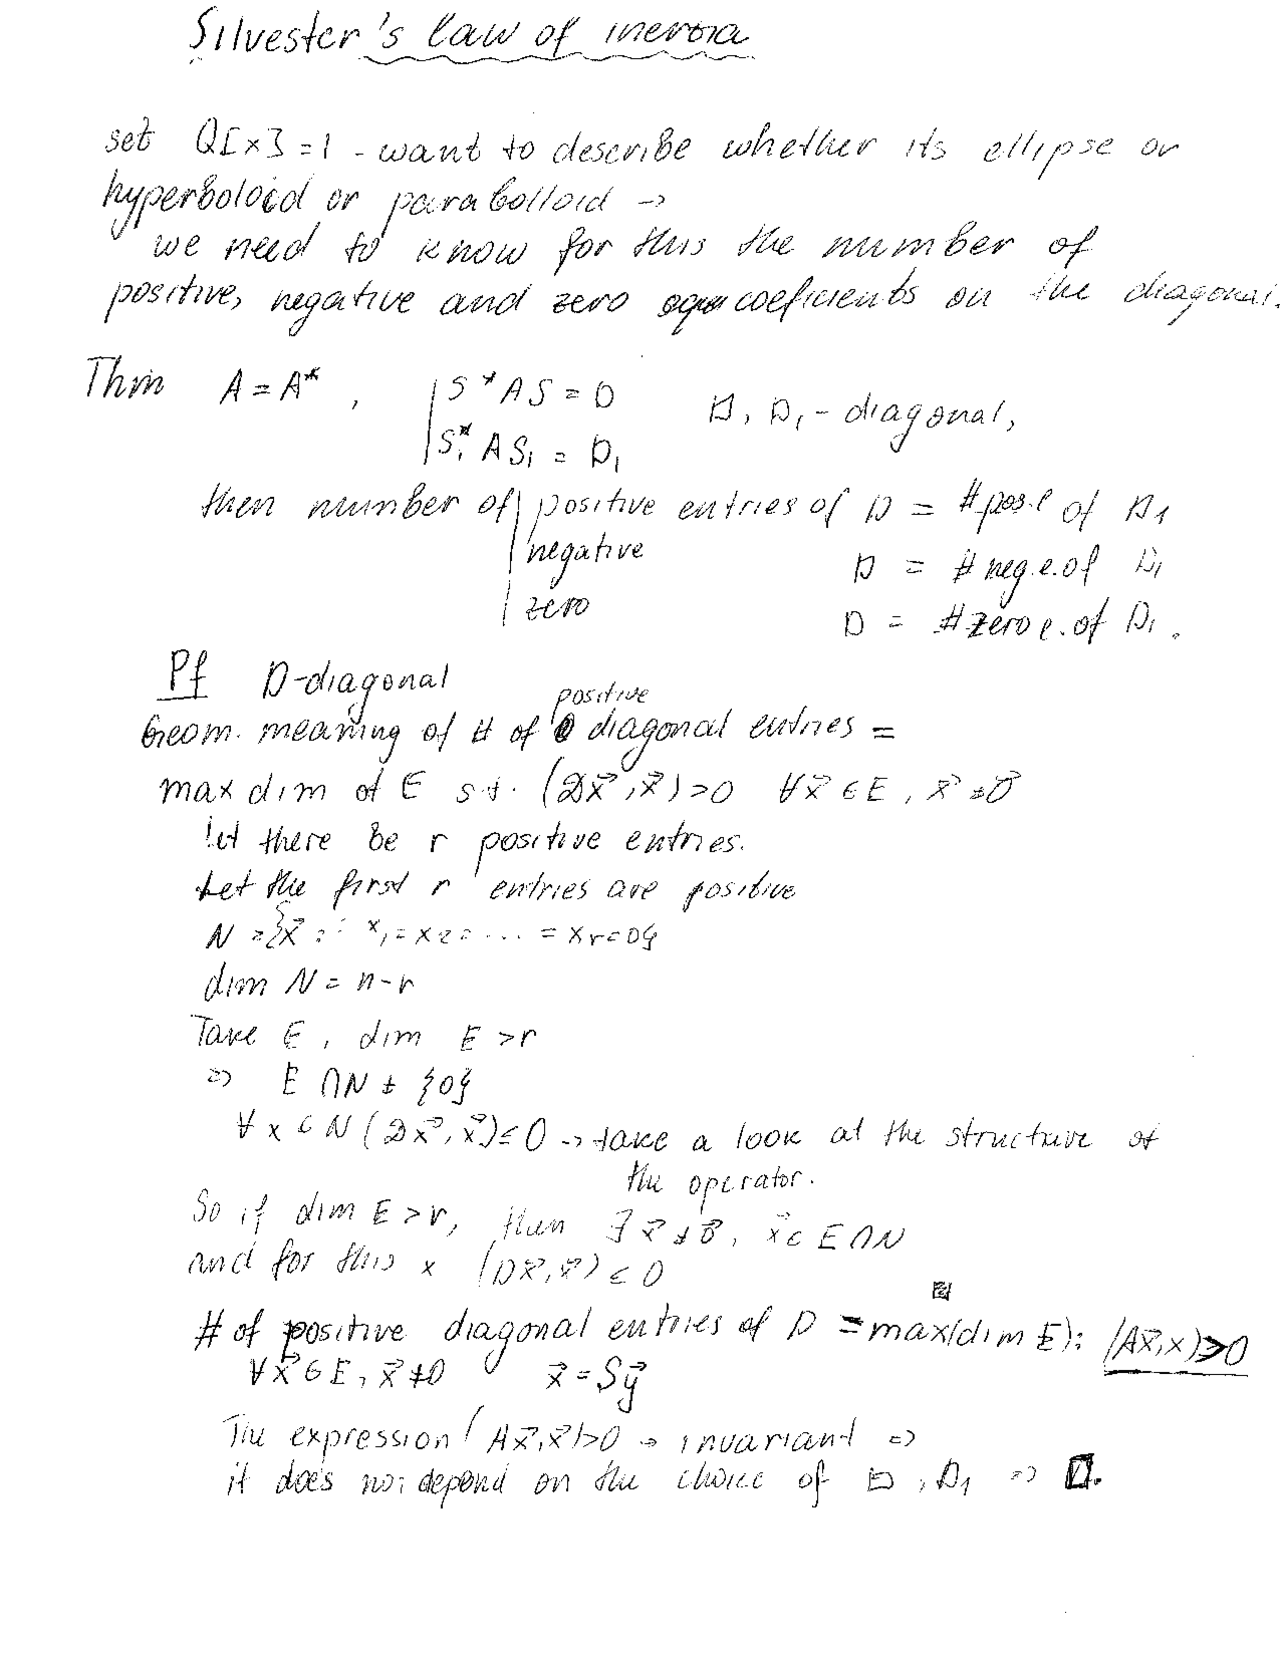 Silvester's law of inertia
set Q[x]=1 - want to describe whether its ellipse or
hyperboloid or parabolloid →
we need to know for this the number of
positive, negative and zero coeficients on the diagonal.
Thm A = A*, | S*AS = D D, D₁ - diagonal,
| S₁* A S₁ = D₁
then number of | positive entries of D = # pos.e of D₁
| negative D = # neg.e. of D₁
| zero D = # zero e. of D₁.
Pf D-diagonal
positive
Geom. meaning of # of diagonal entries =
max dim of E s.t. (Dx⃗, x⃗) > 0 ∀x⃗ ∈ E, x⃗ ≠ 0⃗
Let there be r positive entries.
Let the first r entries are positive
N = {x⃗ : x₁ = x₂ = ... = xr = 0}
dim N = n-r
Take E, dim E > r
⇒ E ∩ N ≠ {0}
∀ x ∈ N (Dx⃗, x⃗) ≤ 0 → take a look at the structure of
the operator.
So if dim E > r, then ∃ x⃗ ≠ 0⃗, x⃗ ∈ E ∩ N
and for this x (Dx⃗, x⃗) ≤ 0
# of positive diagonal entries of D = max(dim E): (Ax⃗, x) > 0
∀x⃗ ∈ E, x⃗ ≠ 0 x⃗ = Sy⃗
The expression (Ax⃗, x⃗) > 0 → invariant ⇒
it does not depend on the choice of D, D₁ ⇒ □.